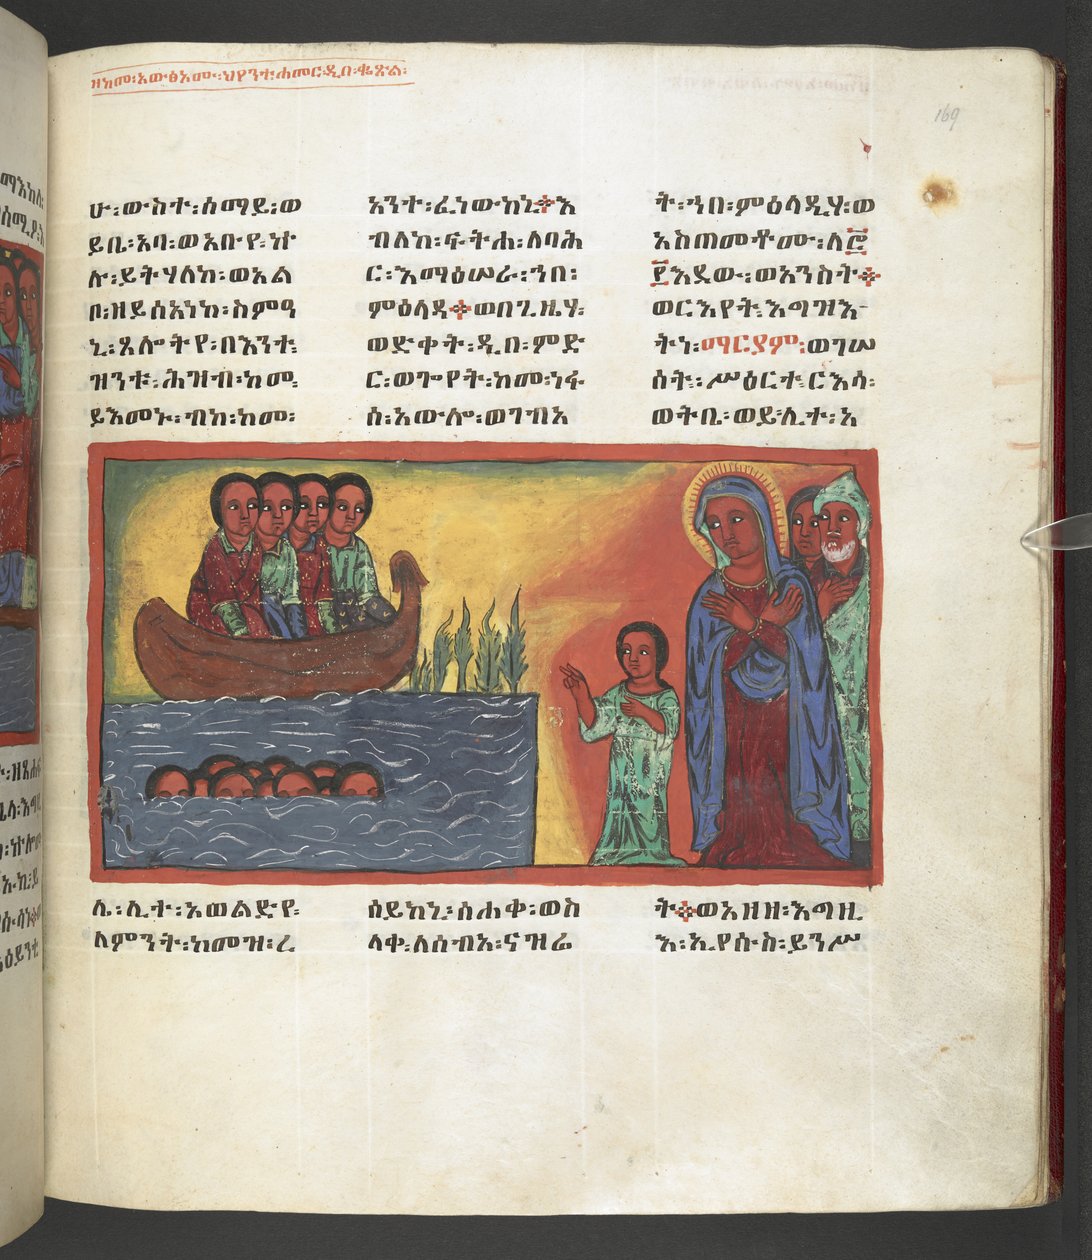 ዘከመ፡አውፅአሙ፡ህየንተ፡ሐመር፡ዲበ፡ቈጽል፡
169
ሁ፡ውስተ፡ሰማይ፡ወ
ይቤ፡አባ፡ወአቡየ፡ኵ
ሉ፡ይትሃለከ፡ወአል
ቦ፡ዘይሰአነከ፡ስምዓ
ኒ፡ጸሎትየ፡በእንተ፡
ዝንቱ፡ሕዝብ፡ከመ፡
ይእመኑ፡ብከ፡ከመ፡
አንተ፡ፈነውከኒ፨እ
ብለከ፡ፍትሐ፡ለባሕ
ር፡እማዕሠራ፡ኀበ፡
ምዕላዳ፨ወበጊዜሃ፡
ወድቀት፡ዲበ፡ምድ
ር፡ወጐየት፡ከመ፡ነፋ
ስ፡አውሎ፡ወገብአ
ት፡ኀበ፡ምዕላዲሃ፡ወ
አስጠመቶሙ፡ለ፸
፪እደው፡ወአንስት፨
ወርእየት፡እግዝእ
ትነ፡ማርያም፡ወገሠ
ሰት፡ሥዕርተ፡ርእሳ፡
ወትቤ፡ወይ፡ሊተ፡አ
ሌ፡ሊተ፡አወልድየ፡
ለምንት፡ከመዝ፡ረ
ሰይከኒ፡ሰሐቀ፡ወስ
ላቀ፡ለሰብአ፡ናዝሬ
ት፨ወአዘዘ፡እግዚ
እ፡ኢየሱስ፡ይንሥ